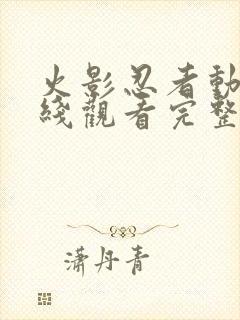 火影忍者動
綫觀看完整
潇丹青